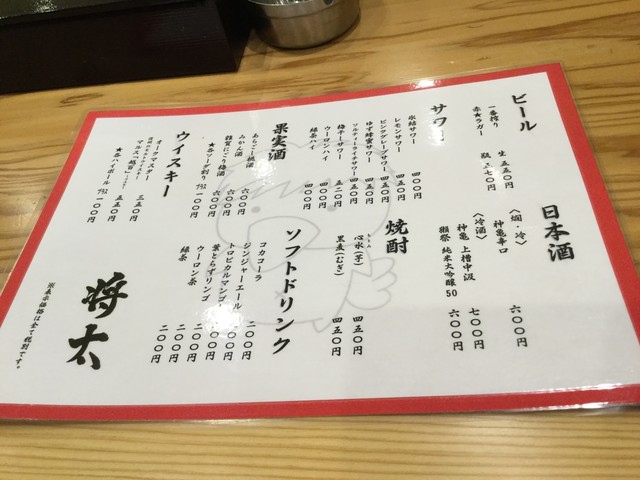 ビール
一番搾り 生 五五〇円
赤★ラガー 瓶
日本酒
〈燗・冷〉
神亀辛口 六〇〇円
〈冷酒〉
神亀 上槽中汲 七〇〇円
獺祭 純米大吟醸50 六〇〇円
サワー
氷結サワー 四〇〇円
レモンサワー 四五〇円
ピンクグレープサワー 四五〇円
ゆず蜂蜜サワー 四五〇円
ソルティーライチサワー 四五〇円
梅干サワー 五二〇円
ウーロンハイ 四〇〇円
緑茶ハイ 四〇〇円
焼酎
心水(芋) 四五〇円
黒麦(むぎ) 四五〇円
果実酒
あらごし桃酒 六〇〇円
みかん酒 六〇〇円
雑賀にごり梅酒 六〇〇円
★各ソーダ割り プラス一〇〇円
ソフトドリンク
コカコーラ 二〇〇円
ジンジャーエール 二〇〇円
トロピカルマンゴ 二〇〇円
葉とらずリンゴ 二〇〇円
ウーロン茶 二〇〇円
緑茶 二〇〇円
ウイスキー
オークマスター 三五〇円
マルスつ越百 五五〇円
★各ハイボール プラス一〇〇円
将太
※表示価格は全て税別です。